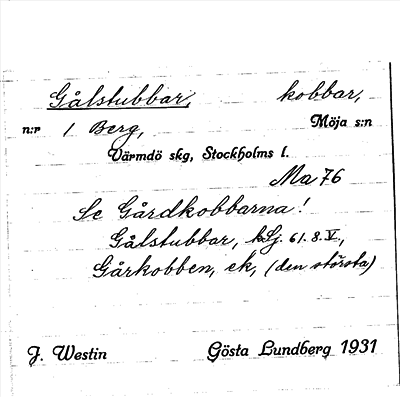 Gålstubbar, kobbar,
n:r 1 Berg, Möja s:n
Värmdö skg, Stockholms l.
Ma 76
Se Gårdkobbarna!
Gålstubbar, 61. 8. V.,
Gårkobben, ek, (den största)
J. Westin Gösta Lundberg 1931